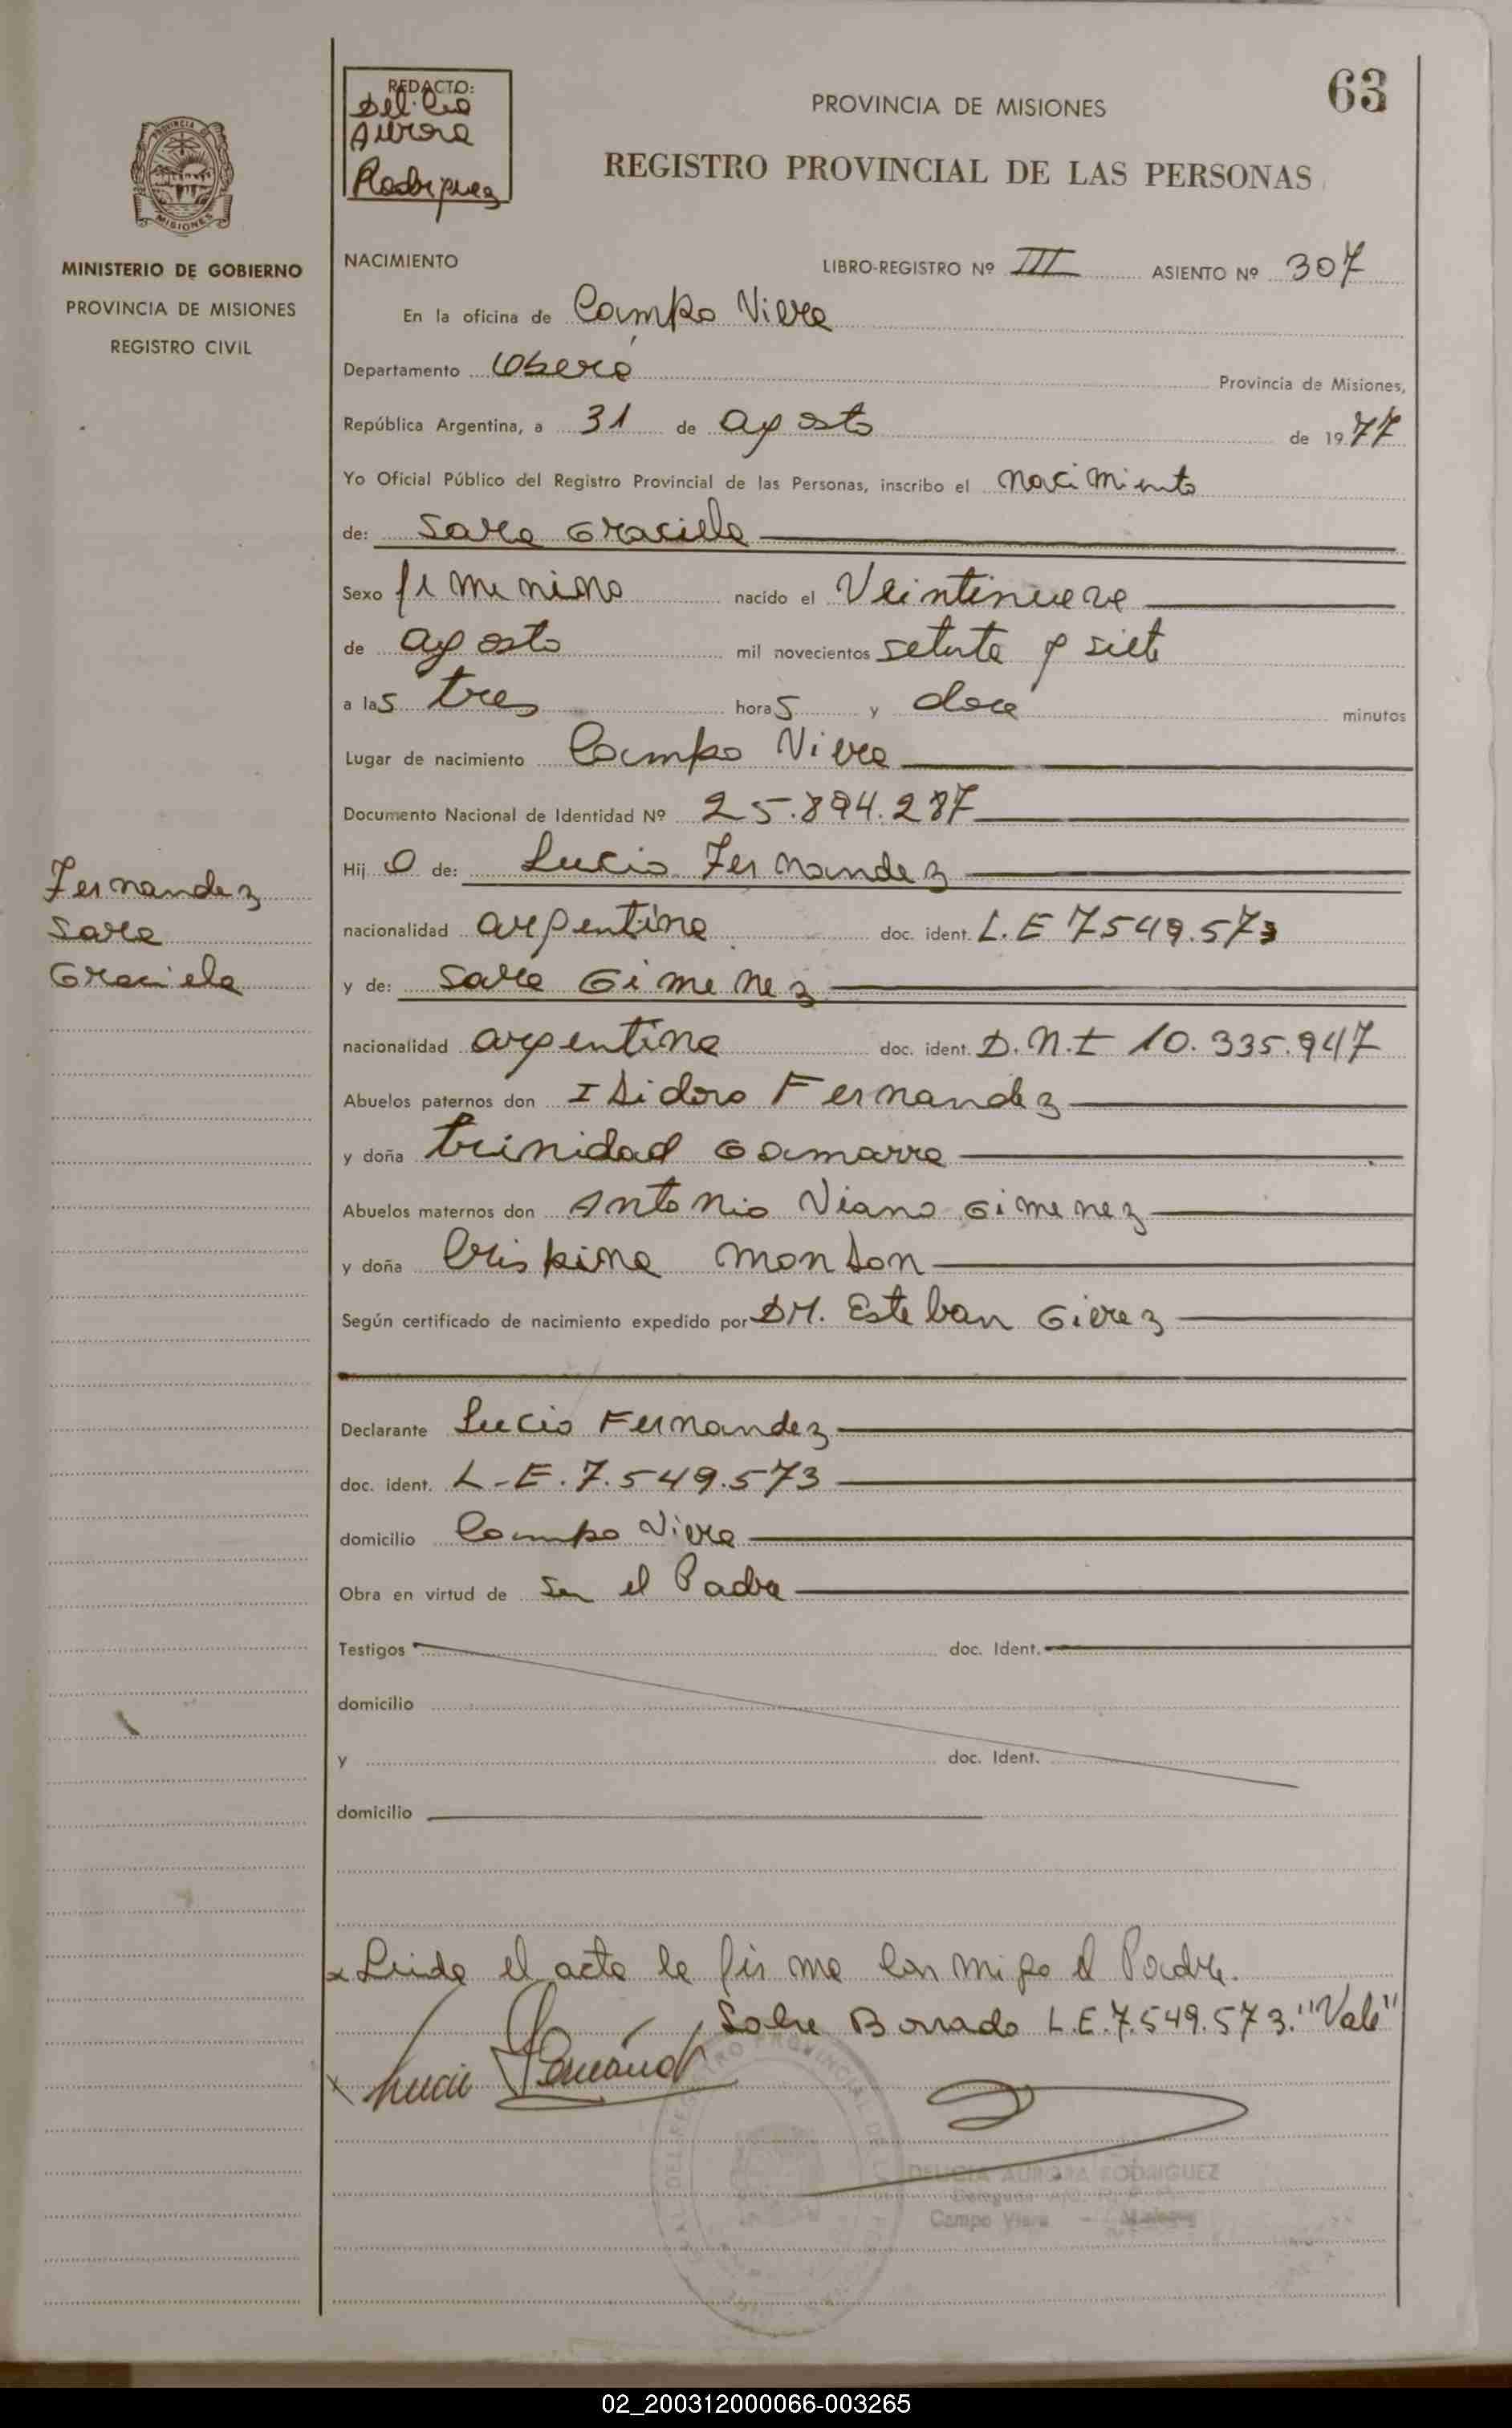 63
REDACTO:
Delicia
Aurora
Rodriguez
PROVINCIA DE MISIONES
REGISTRO PROVINCIAL DE LAS PERSONAS
MISIONES
MINISTERIO DE GOBIERNO
PROVINCIA DE MISIONES
REGISTRO CIVIL
Fernandez
Sara
Graciela
NACIMIENTO LIBRO-REGISTRO Nº III ASIENTO Nº 307
En la oficina de Campo Viera
Departamento Oberá Provincia de Misiones,
República Argentina, a 31 de agosto de 1977
Yo Oficial Público del Registro Provincial de las Personas, inscribo el nacimiento
de: Sara Graciela
Sexo femenino nacido el Veintinueve
de agosto mil novecientos setenta y siete
a las tres horas y doce minutos
Lugar de nacimiento Campo Viera
Documento Nacional de Identidad Nº 25.894.287
Hija de: Lucio Fernandez
nacionalidad argentina doc. ident. L.E 7549.573
y de: Sara Gimenez
nacionalidad argentina doc. ident. D.N.I 10.335.947
Abuelos paternos don Isidoro Fernandez
y doña trinidad Gamarra
Abuelos maternos don Antonio Viano Gimenez
y doña Crispina Monson
Según certificado de nacimiento expedido por DR. Esteban
Declarante Lucio Fernandez
doc. ident. L-E.7.549.573
domicilio Campo Viera
Obra en virtud de Ser el Padre
Testigos doc. Ident.
domicilio
y doc. Ident.
domicilio
Leida el acta la firma conmigo el Padre.
Sobre Borrado L.E.7.549.573."Vale"
Lucio Fernandez
DELICIA AURORA RODRIGUEZ
Campo Viera - Misiones
02_200312000066-003265